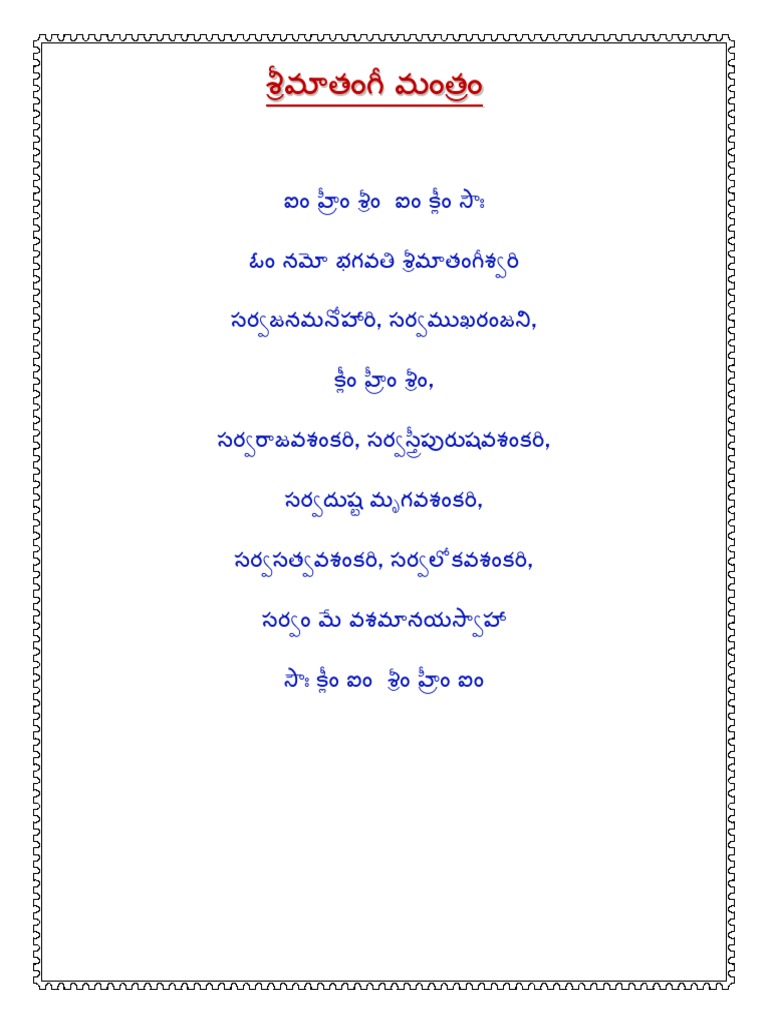 శ్రీమాతంగీ మంత్రం
ఐం హ్రీం శ్రీం ఐం క్లీం సౌః
ఓం నమో భగవతి శ్రీమాతంగీశ్వరి
సర్వజనమనోహారి, సర్వముఖరంజని,
క్లీం హ్రీం శ్రీం,
సర్వరాజవశంకరి, సర్వస్త్రీపురుషవశంకరి,
సర్వదుష్ట మృగవశంకరి,
సర్వసత్వవశంకరి, సర్వలోకవశంకరి,
సర్వం మే వశమానయస్వాహా
సౌః క్లీం ఐం శ్రీం హ్రీం ఐం